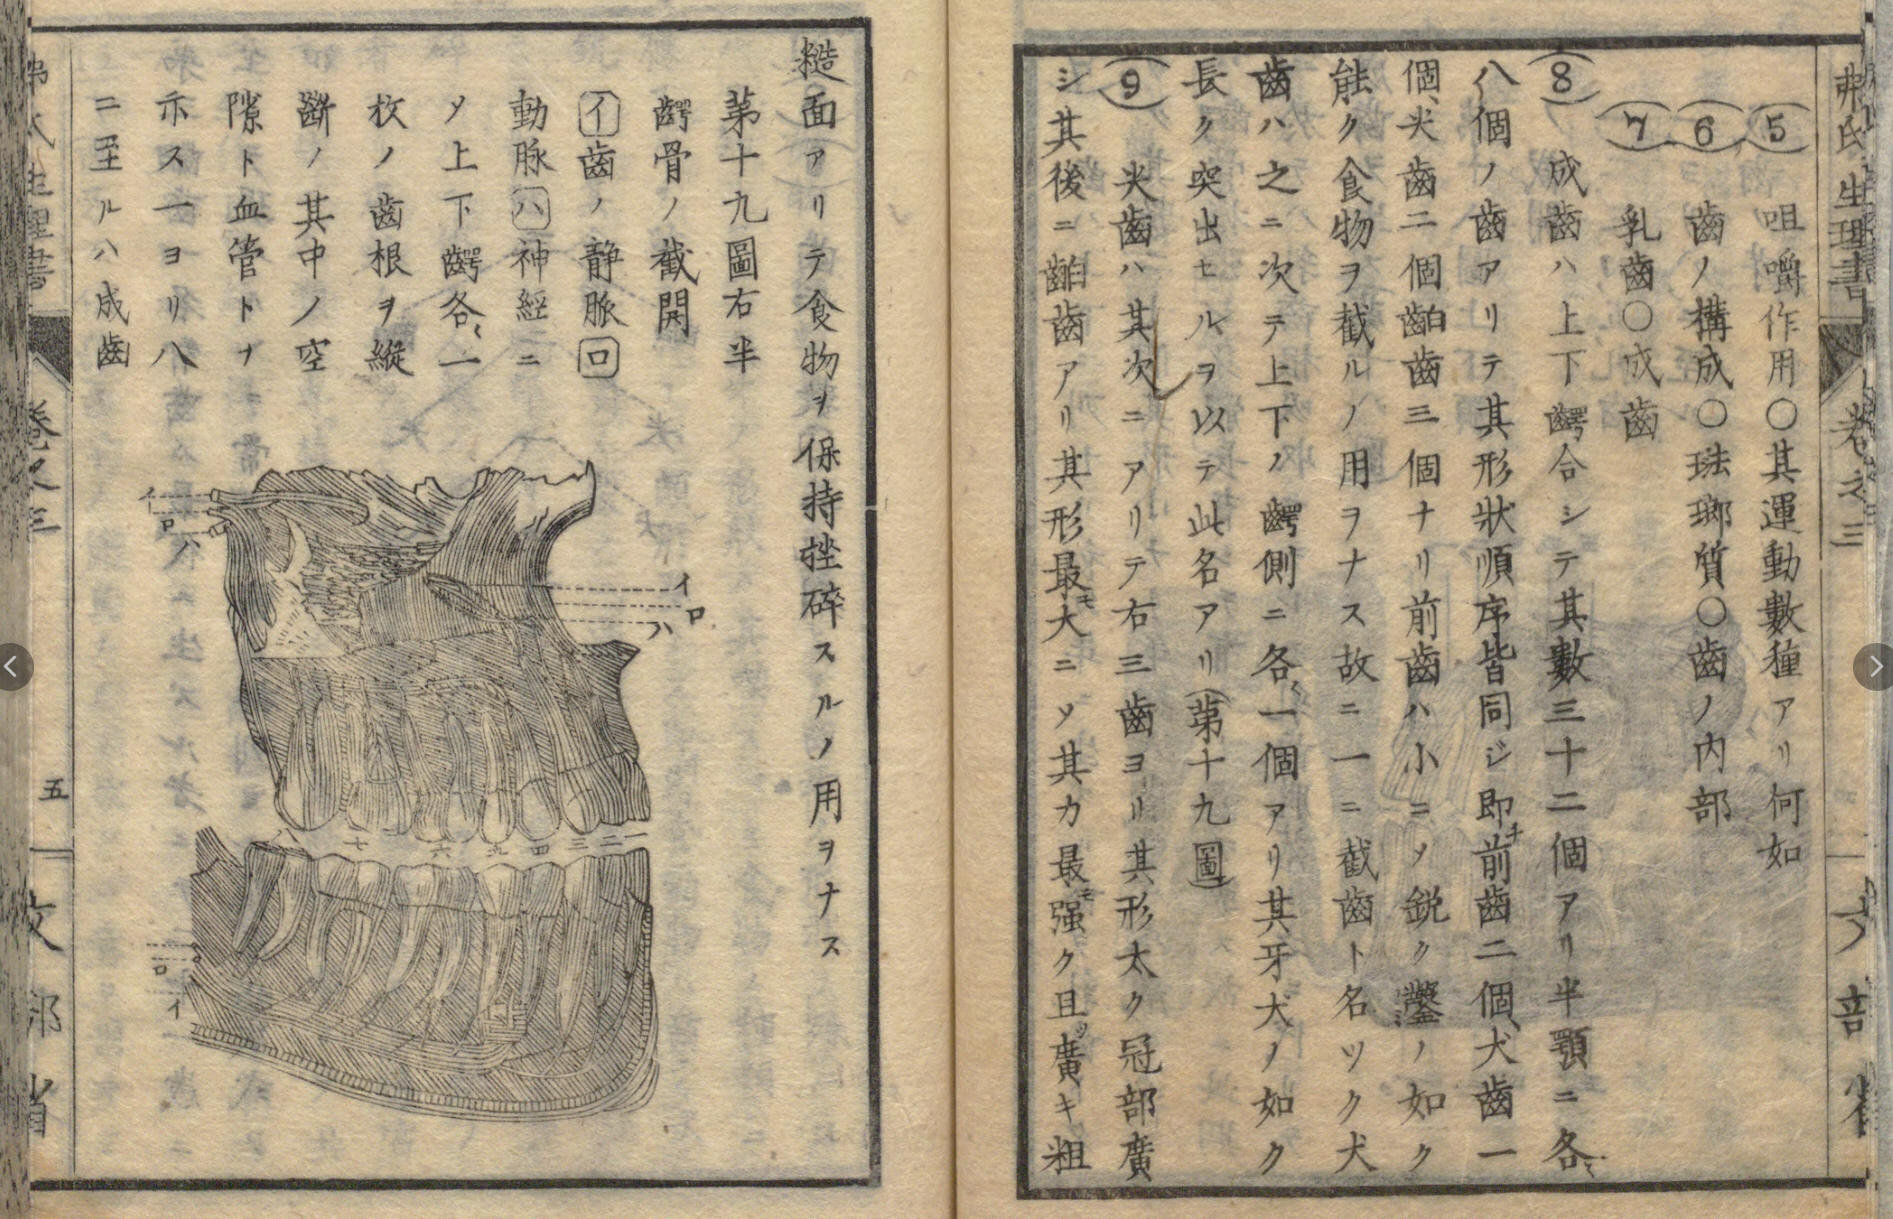 弗氏生理書
卷之三
文部省
5 咀嚼作用〇其運動數種アリ何如
6 齒ノ構成〇琺瑯質〇齒ノ内部
7 乳齒〇成齒
8 成齒ハ上下齶合シテ其數三十二個アリ半顎ニ各〻
八個ノ齒アリテ其形狀順序皆同ジ即チ前齒二個、犬齒一
個、尖齒二個齨齒三個ナリ前齒ハ小ニノ鋭ク鑿ノ如ク
能ク食物ヲ截ルノ用ヲナス故ニ一ニ截齒ト名ツク犬
齒ハ之ニ次テ上下ノ齶側ニ各〻一個アリ其牙犬ノ如ク
長ク突出セルヲ以テ此名アリ(苐十九圖)
9 尖齒ハ其次ニアリテ右三齒ヨリ其形太ク冠部廣
シ其後ニ齨齒アリ其形最モ大ニソ其力最モ强ク且ツ廣キ粗
糙面アリテ食物ヲ保持挫碎スルノ用ヲナス
苐十九圖右半
齶骨ノ截開
イ齒ノ静脈ロ
動脉ハ神經ニ
ソ上下齶各〻一
枚ノ齒根ヲ縱
斷ノ其中ノ空
隙ト血管トナ
示ス一ヨリ八
ニ至ルハ成齒
イ
ロ
ハ
イ
ロ
ハ
一
二
三
四
九
六
七
八
ロ
イ
卷之三
五
文部省